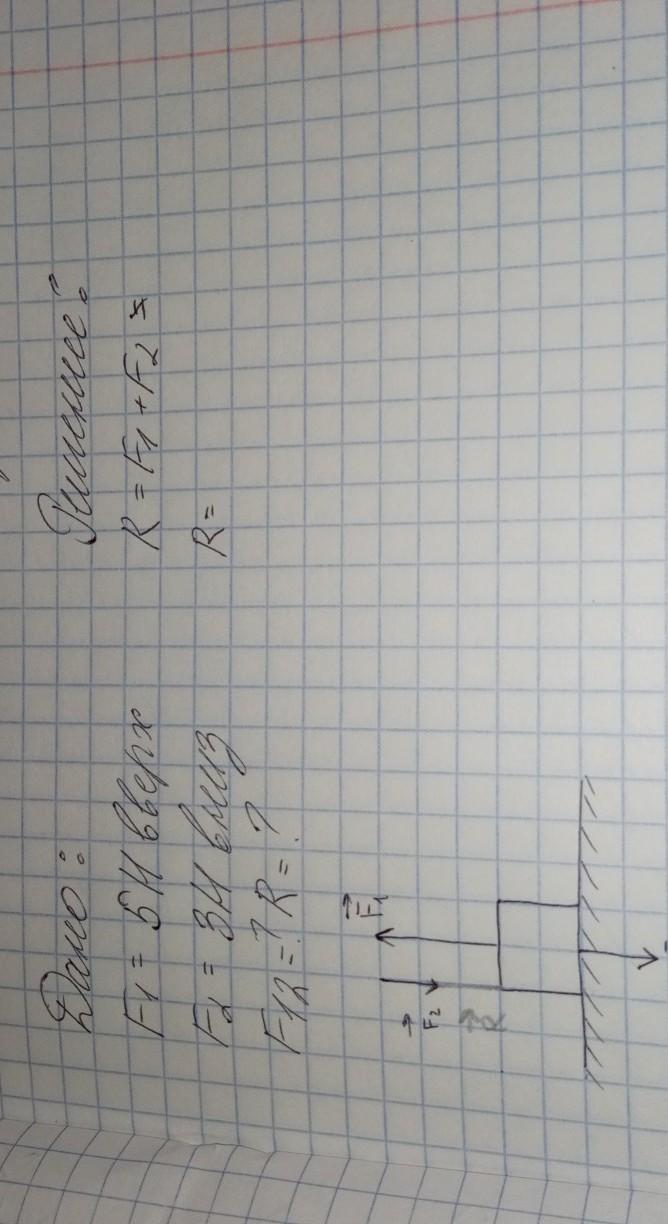 Дано:
F1 = 5Н вверх
F2 = 3Н вниз
F12 = ? R = ?
Решение:
R = F1 + F2 =
R =
F1
F2
R